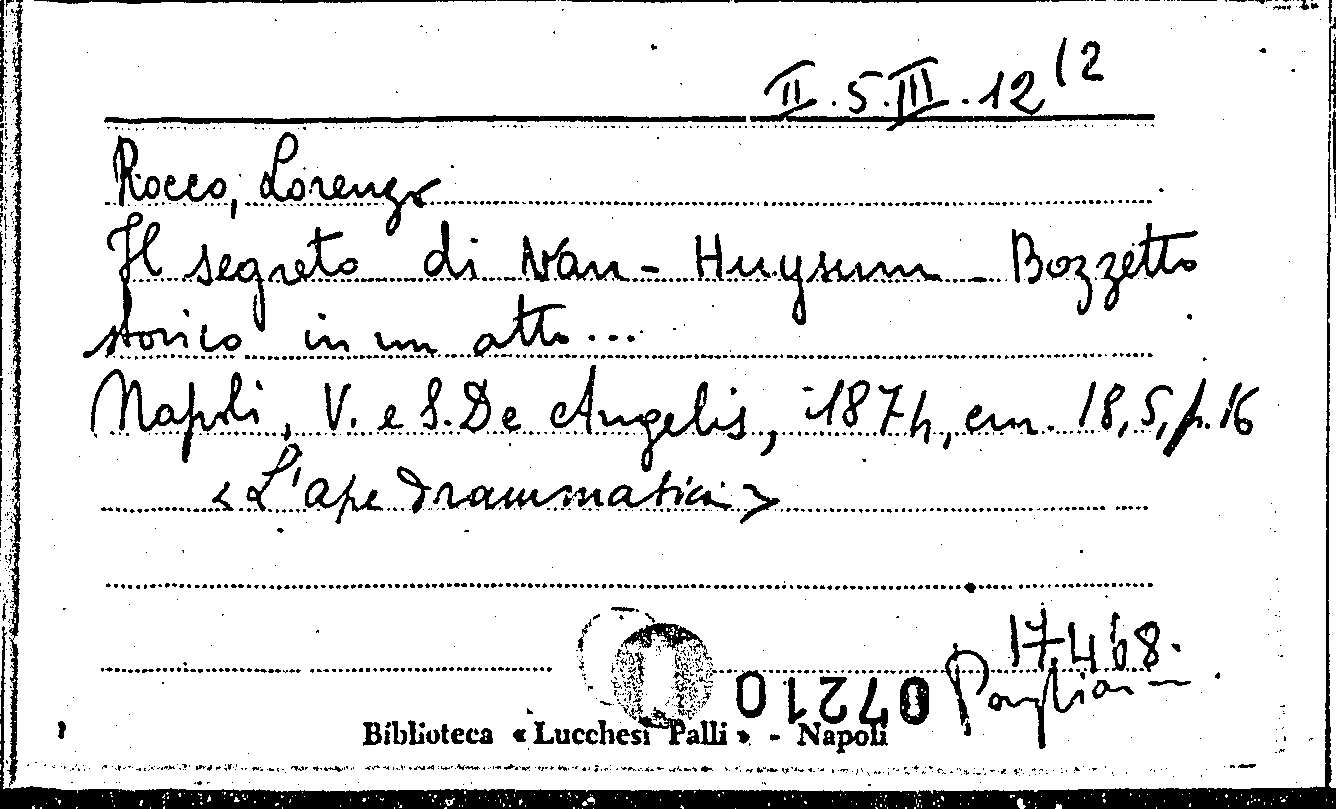 II.5.III.12 12
Rocco, Lorenzo
Il segreto di Van-Huysum - Bozzetto
storico in un atto...
Napoli, V. e S. De Angelis, 1874, cm. 18,5, p. 16
<L'ape drammatica>
17.4.68.
07210
Biblioteca « Lucchesi Palli » - Napoli